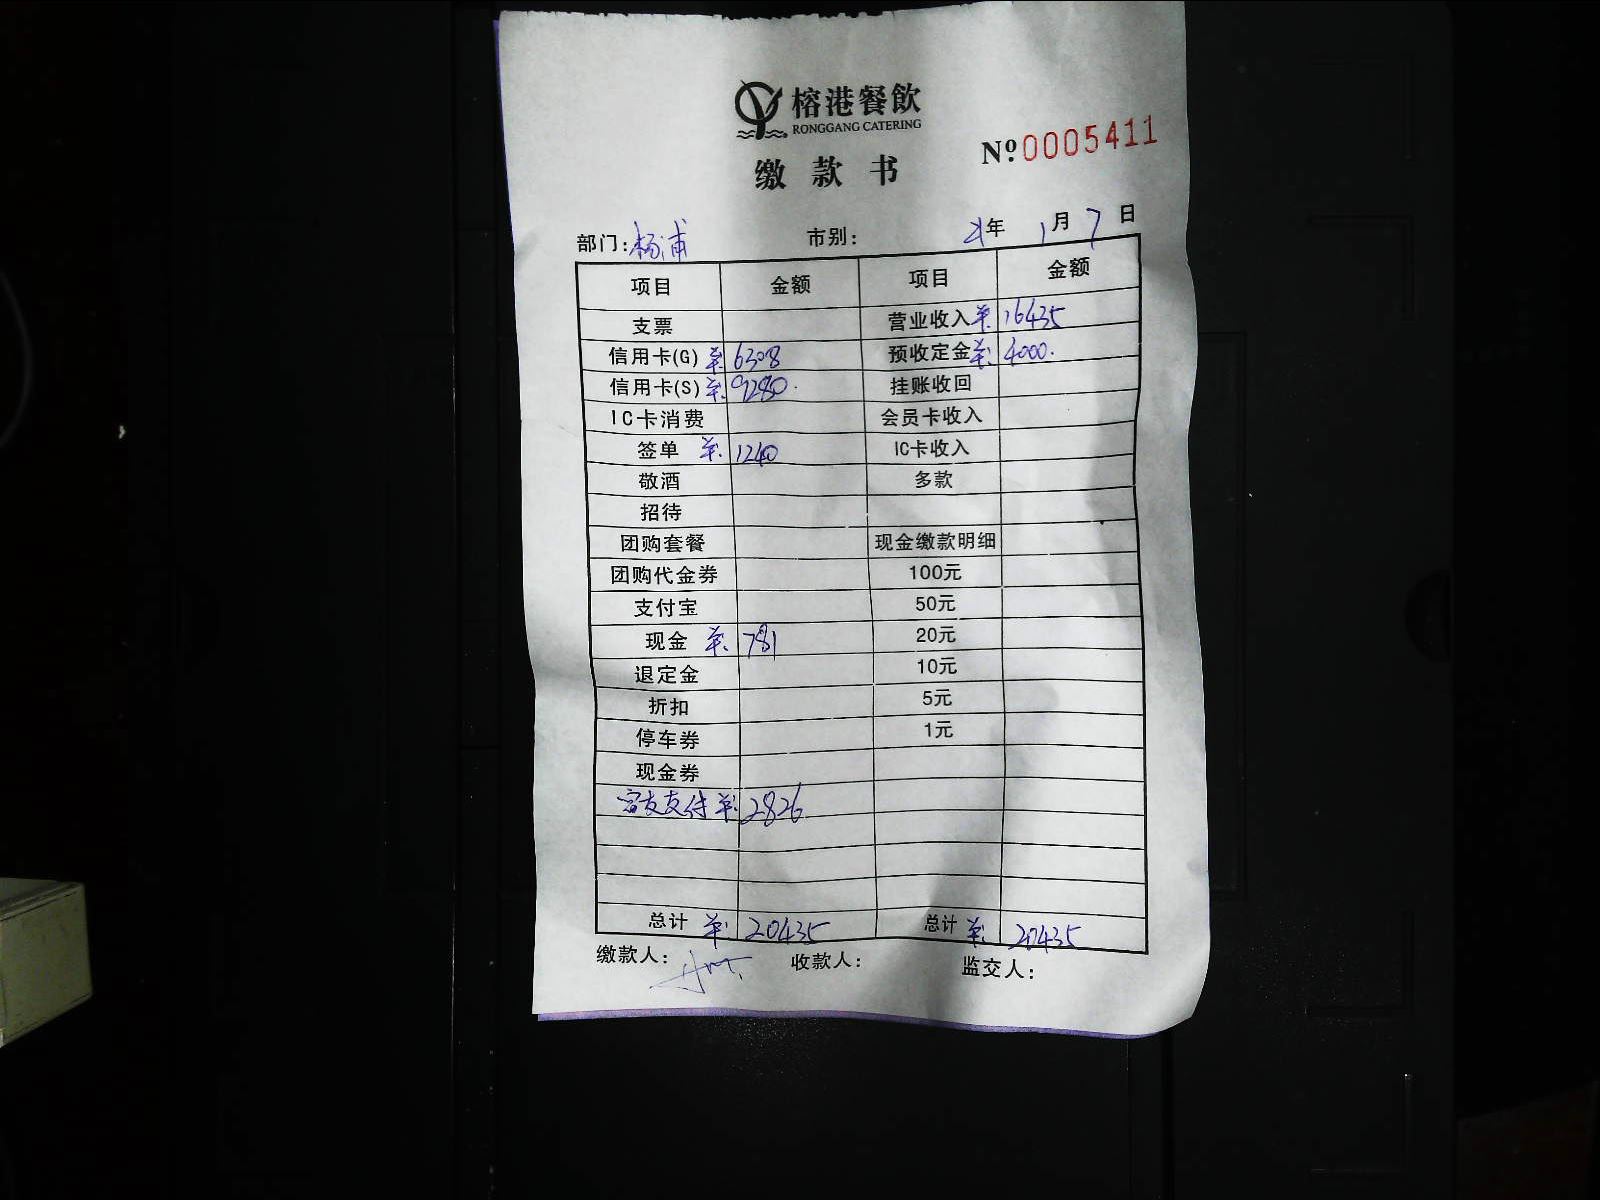 榕港餐飲
RONGGANG CATERING
缴款书
Nº.0005411
部门: 杨浦 市别: 21年 1月 7日
项目 金额 项目 金额
支票 营业收入 16435
信用卡(G) 6308 预收定金 4000.
信用卡(S) 9280. 挂账收回
IC卡消费 会员卡收入
签单 1240 IC卡收入
敬酒 多款
招待
团购套餐 现金缴款明细
团购代金券 100元
支付宝 50元
现金 781 20元
退定金 10元
折扣 5元
停车券 1元
现金券
支付 2826
总计 20435 总计 20435
缴款人: 收款人: 监交人: